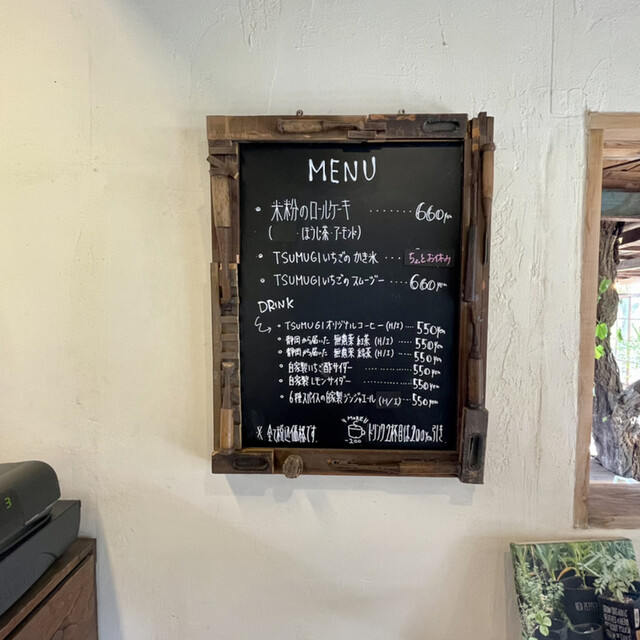 MENU
・米粉のロールケーキ ……… 660yen
(ほうじ茶・アーモンド)
・TSUMUGIいちごの かき氷 … ちょっとお休み
・TSUMUGIいちごの スムージー … 660yen
DRINK
・TSUMUGIオリジナルコーヒー(H/I) … 550yen
・静岡から届いた 無農薬 紅茶(H/I) … 550yen
・静岡から届いた 無農薬 緑茶(H/I) … 550yen
・自家製いちご酢サイダー ……… 550yen
・自家製レモンサイダー ……… 550yen
・6種スパイスの自家製ジンジャエール(H/I) … 550yen
※全て税込価格です。
-200
ドリンク2杯目は200yen引き
3